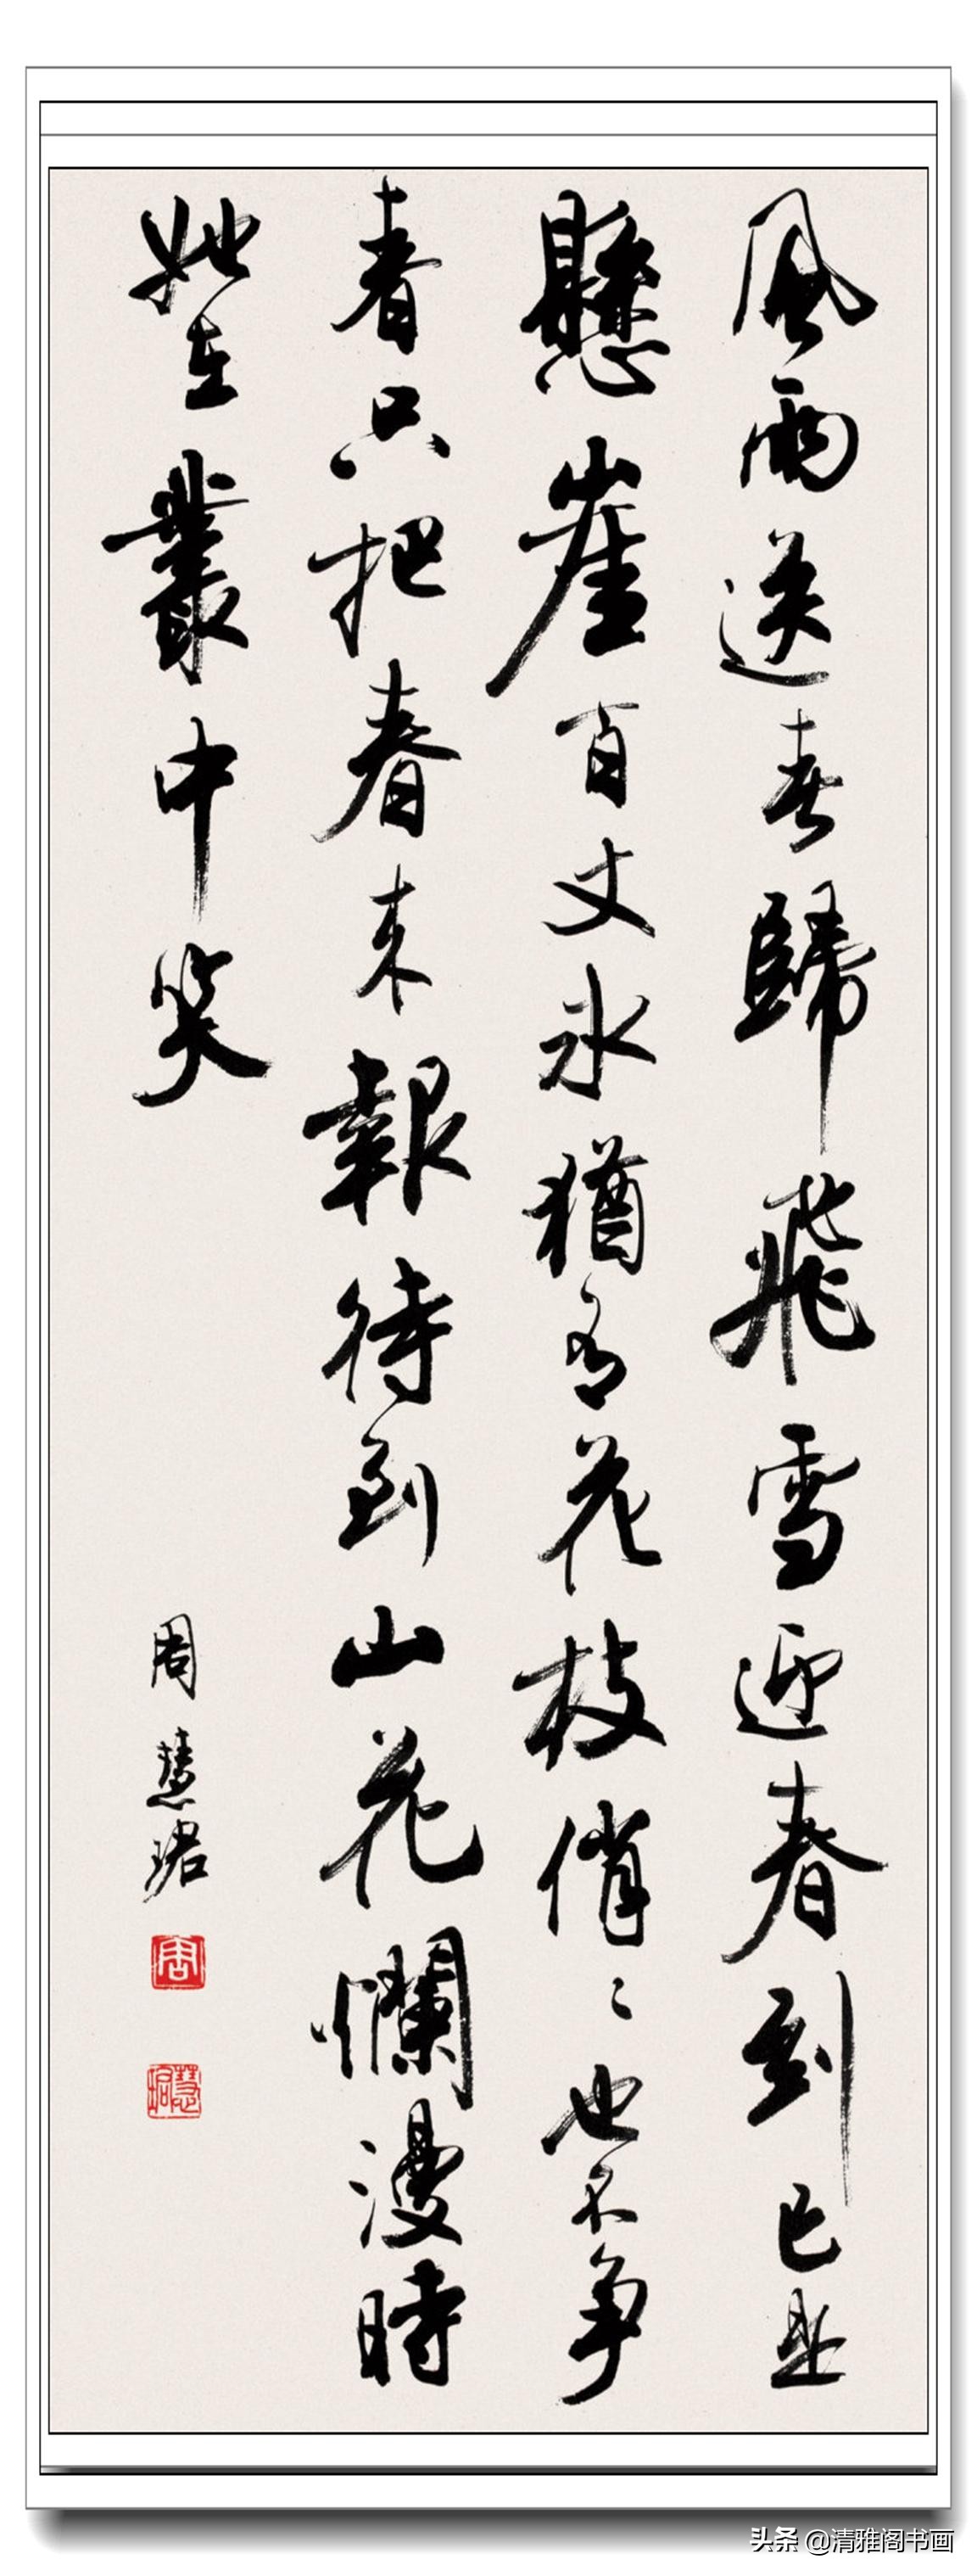 風雨送春歸飛雪迎春到已是
懸崖百丈冰猶有花枝俏々也不争
春只把春来報待到山花爛漫時
她在叢中笑
周慧珺
周
慧珺
头条 @清雅阁书画